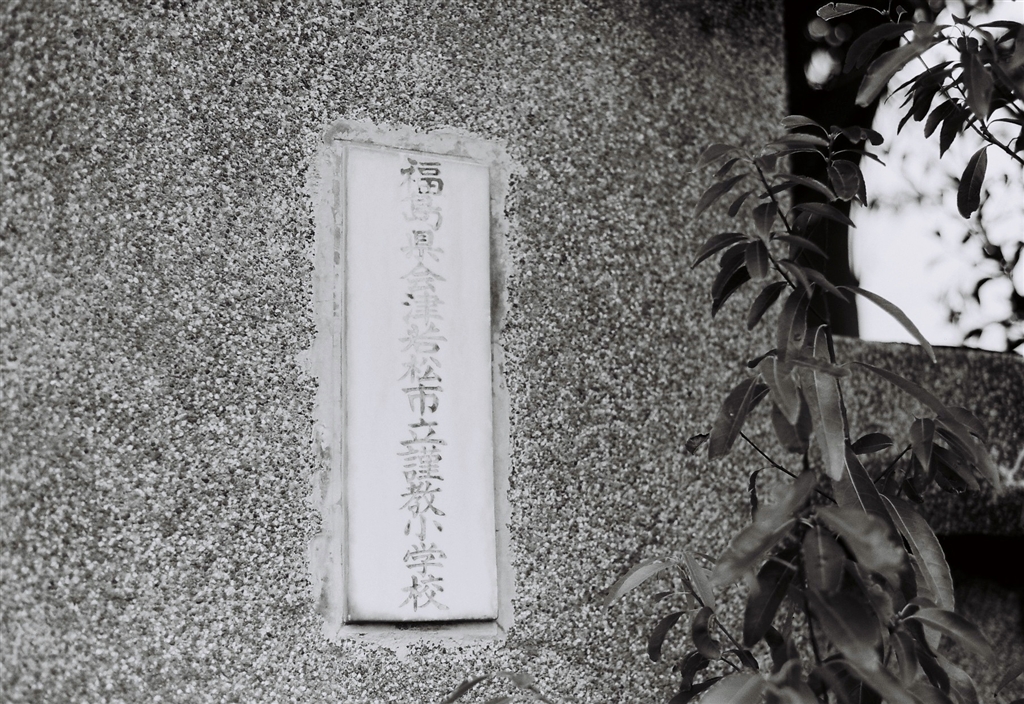 福島県会津若松市立謹教小学校